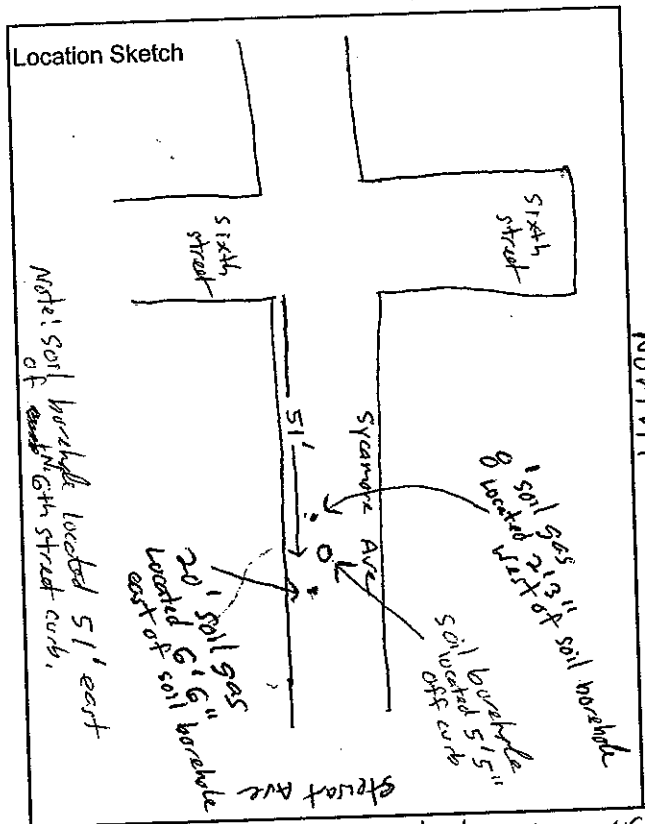 Location Sketch
Sixth
street
Sixth
street
51'
Sycamore Ave
8' soil gas
Located 2'3"
west of soil borehole
soil borehole
located 5'5"
off curb
20' soil gas
Located 6'6"
east of soil borehole
Stewart Ave
Note! soil borehole located 51' east
of N. 6th street curb.